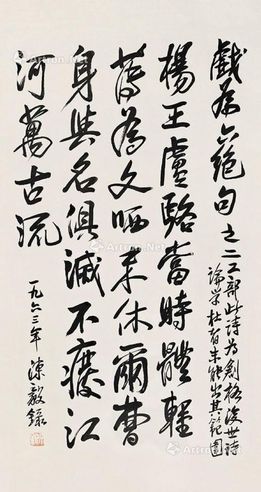 戲為六絕句之二
工部此詩為創格後世詩
論學杜皆未能出其範圍
楊王盧駱當時體輕
薄為文哂未休爾曹
身與名俱滅不廢江
河萬古流
一九六三年 陳毅錄
Artron.Net